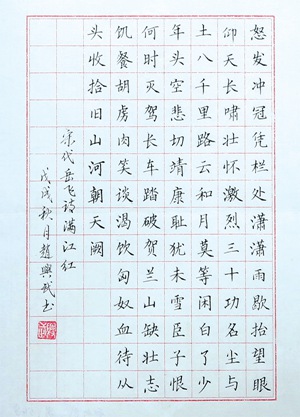 怒发冲冠凭栏处潇潇雨歇抬望眼
仰天长啸壮怀激烈三十功名尘与
土八千里路云和月莫等闲白了少
年头空悲切靖康耻犹未雪臣子恨
何时灭驾长车踏破贺兰山缺壮志
饥餐胡虏肉笑谈渴饮匈奴血待从
头收拾旧山河朝天阙
宋代岳飞诗满江红
戊戌秋月趙興武书